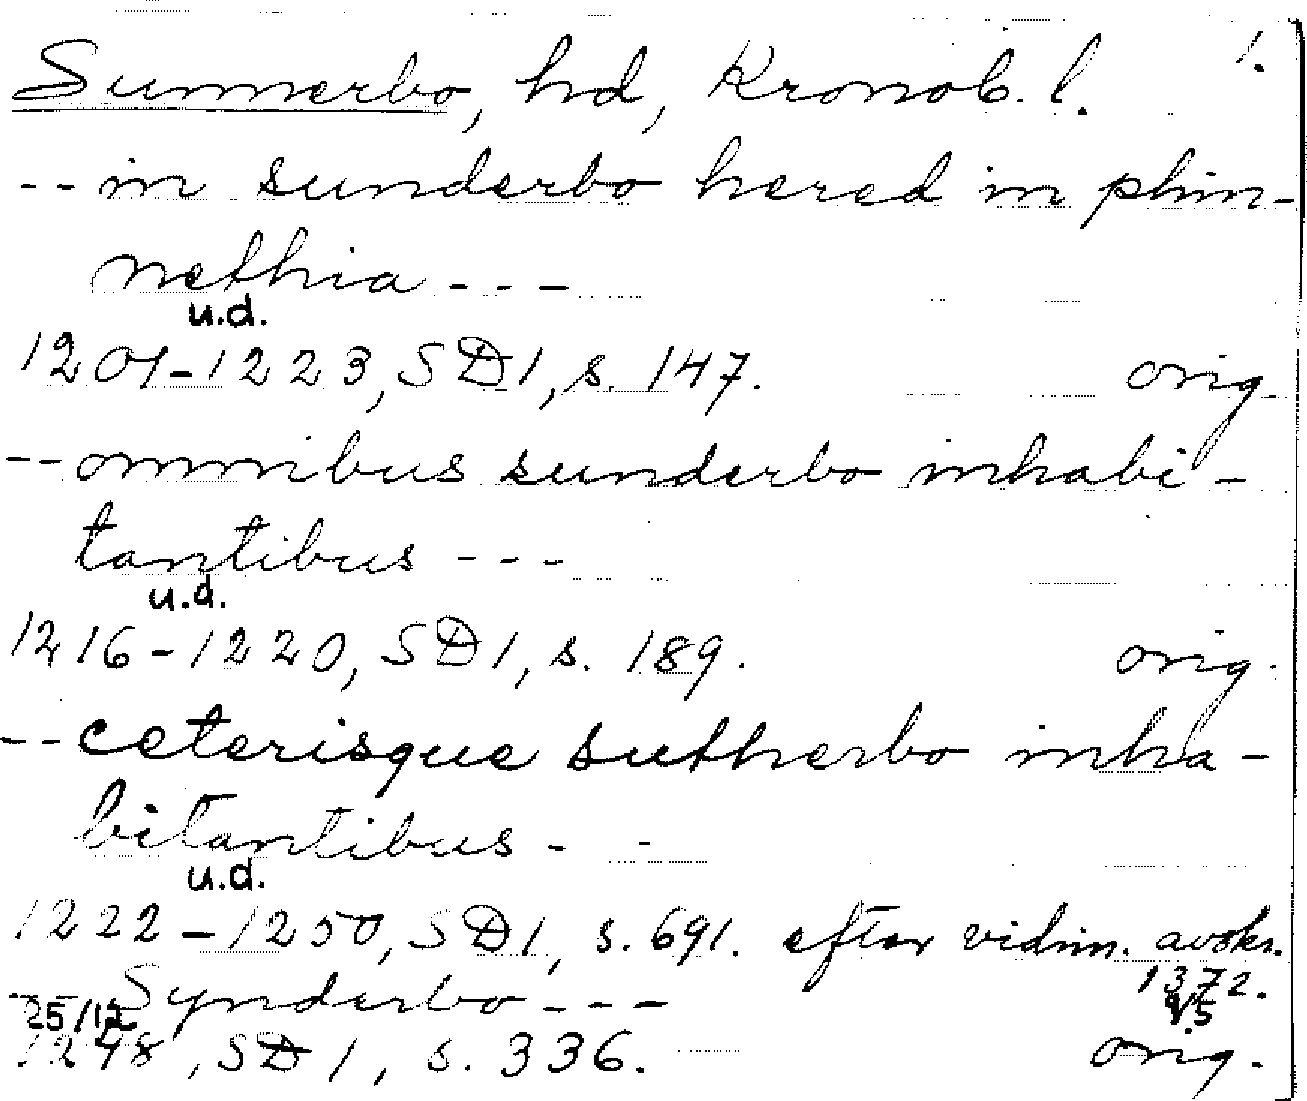 Sunnerbo, hd, Kronob. l. 1.
-- in sunderbo hered in phin-
nethia ---
u.d.
1201-1223, SD1, s. 147. orig.
-- omnibus sunderbo inhabi-
tantibus ---
u.d.
1216-1220, SD1, s. 189. orig.
-- ceterisque sutherbo inha-
bitantibus - -
u.d.
1222-1250, SD1, s. 691. efter vidim. avskr.
1372.
-- Synderbo ---
25/12 9/5
1248, SD1, s. 336. orig.